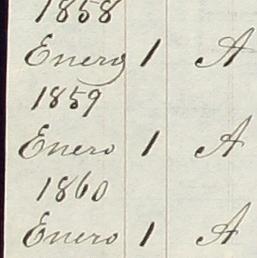 1858
Enero 1 A
1859
Enero 1 A
1860
Enero 1 A